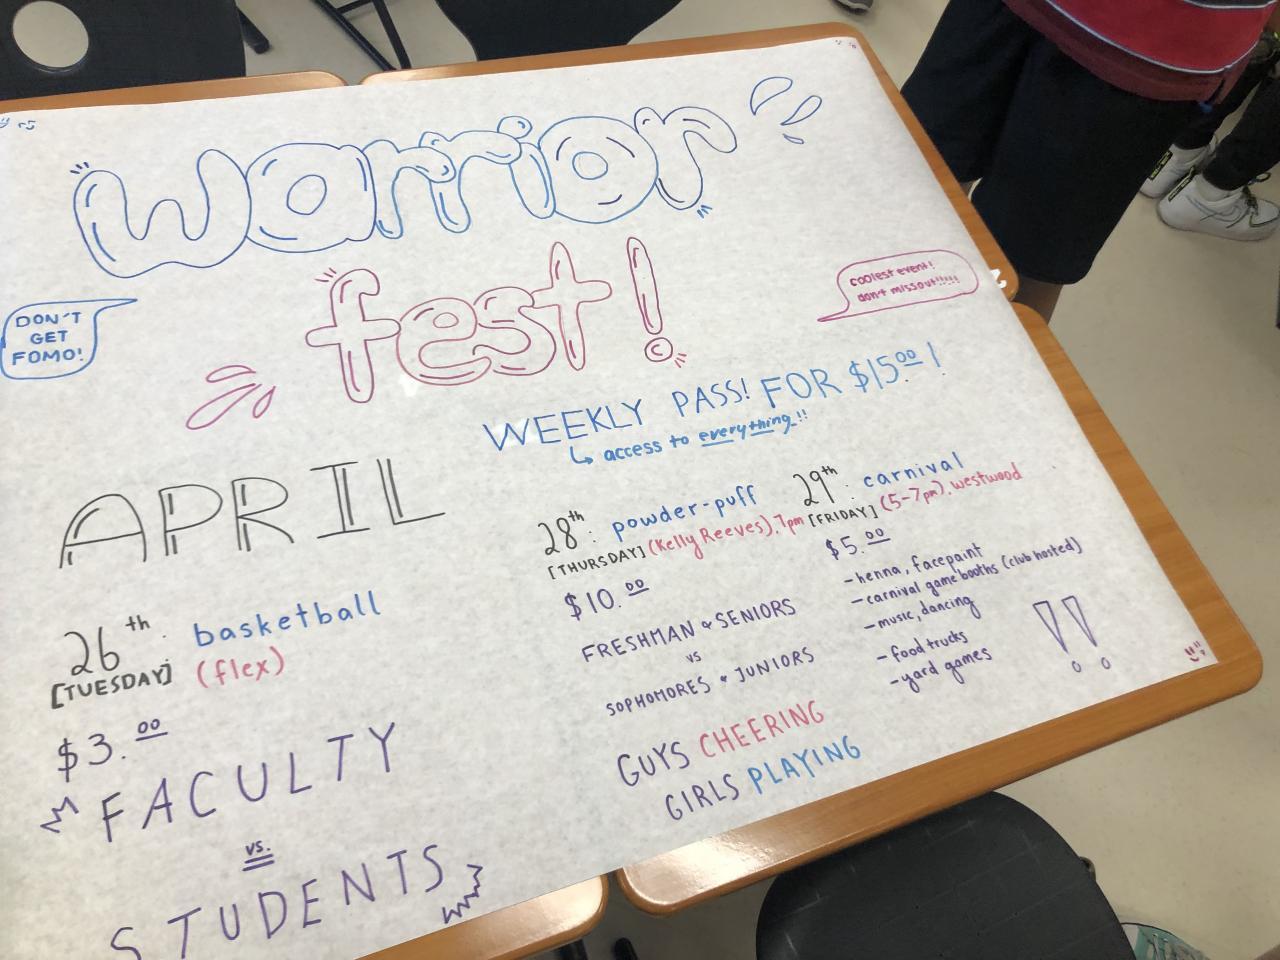 warrior
fest!
DON'T
GET
FOMO!
coolest event!
don't miss out!!!!!
WEEKLY PASS! FOR $15.00!
↳ access to everything!!
APRIL
26th: basketball
[TUESDAY] (flex)
$3.00
FACULTY
vs.
STUDENTS
28th: powder-puff
[THURSDAY] (Kelly Reeves), 7pm
$10.00
FRESHMAN & SENIORS
vs
SOPHOMORES & JUNIORS
GUYS CHEERING
GIRLS PLAYING
29th: carnival
[FRIDAY] (5-7pm), westwood
$5.00
- henna, facepaint
- carnival game booths (club hosted)
- music, dancing
- food trucks
- yard games
!!